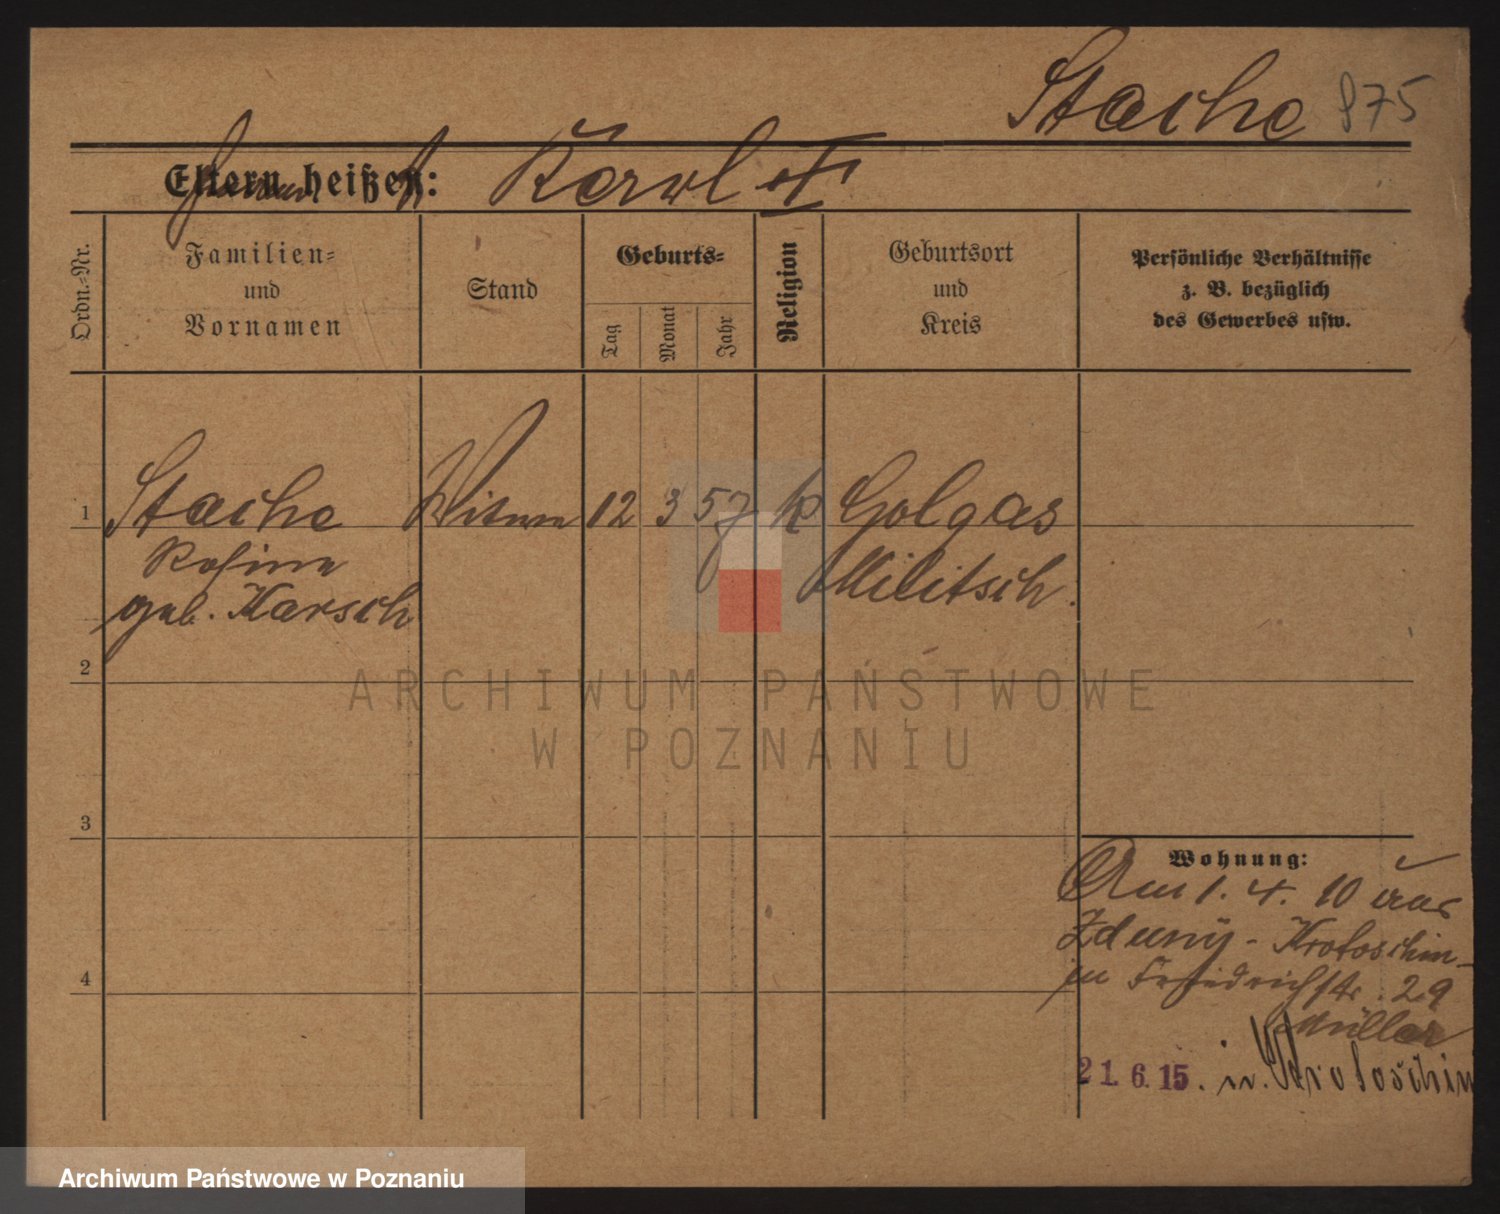 Stache 875
Eltern heißen: Karl II
Ordn.-Nr.
Familien-
und
Vornamen
Stand
Geburts-
Tag
Monat
Jahr
Religion
Geburtsort
und
Kreis
Persönliche Verhältnisse
z. B. bezüglich
des Gewerbes usw.
1 Stache Witwe 12 3 57 k Golgas
Rosina Militsch.
geb. Karsch
2
3
4
Wohnung:
Am 1. 4. 10 aus
Zduny - Krotoschin -
in Friedrichstr. 29
Müller
21. 6. 15. in Krotoschin
ARCHIWUM PAŃSTWOWE
W POZNANIU
Archiwum Państwowe w Poznaniu